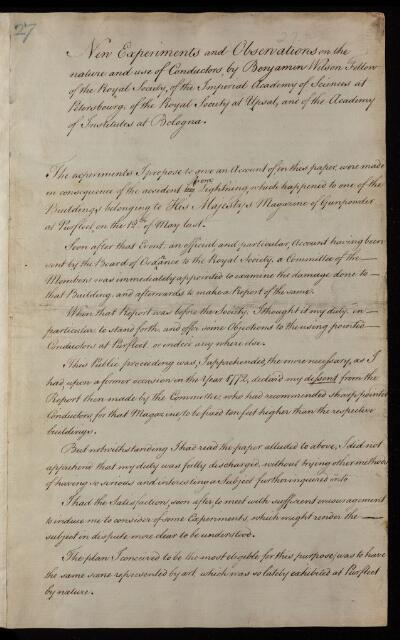 27
New Experiments and Observations on the
nature and use of Conductors, by Benjamin Wilson Fellow
of the Royal Society, of the Imperial Academy of Sciences at
Petersbourg, of the Royal Society at Upsal, and of the Academy
of Institutes at Bologna.
The experiments I propose to give an Account of in this paper, were made
in consequence of the accident from Lightning, which happened to one of the
Buildings belonging to His Majesty's Magazine of Gunpowder
at Purfleet, on the 12th of May last.
Soon after that Event, an official and particular Account having been
sent by the Board of Ordnance to the Royal Society, a Committee of the
Members was immediately appointed to examine the damage done to
that Building, and afterwards to make a Report of the same.
When that Report was before the Society, I thought it my duty, in
particular, to stand forth, and offer some Objections to the using pointed
Conductors at Purfleet, or indeed any where else.
This Public proceeding was, I apprehended, the more necessary, as I
had, upon a former occasion in the Year 1772, declar'd my dissent from the
Report then made by the Committee, who had recommended sharp pointed
Conductors, for that Magazine, to be fixed ten feet higher than the respective
buildings.
But notwithstanding I had read the paper alluded to above, I did not
apprehend that my duty was fully discharged, without trying other methods
of having so serious and interesting a Subject further inquired into.
I had the Satisfaction, soon after, to meet with sufficient encouragement
to induce me to consider of some Experiments, which might render the
subject in dispute more clear to be understood.
The plan I conceived to be the most eligible for this purpose, was to have
the same scene represented by art, which was so lately exhibited at Purfleet
by nature.